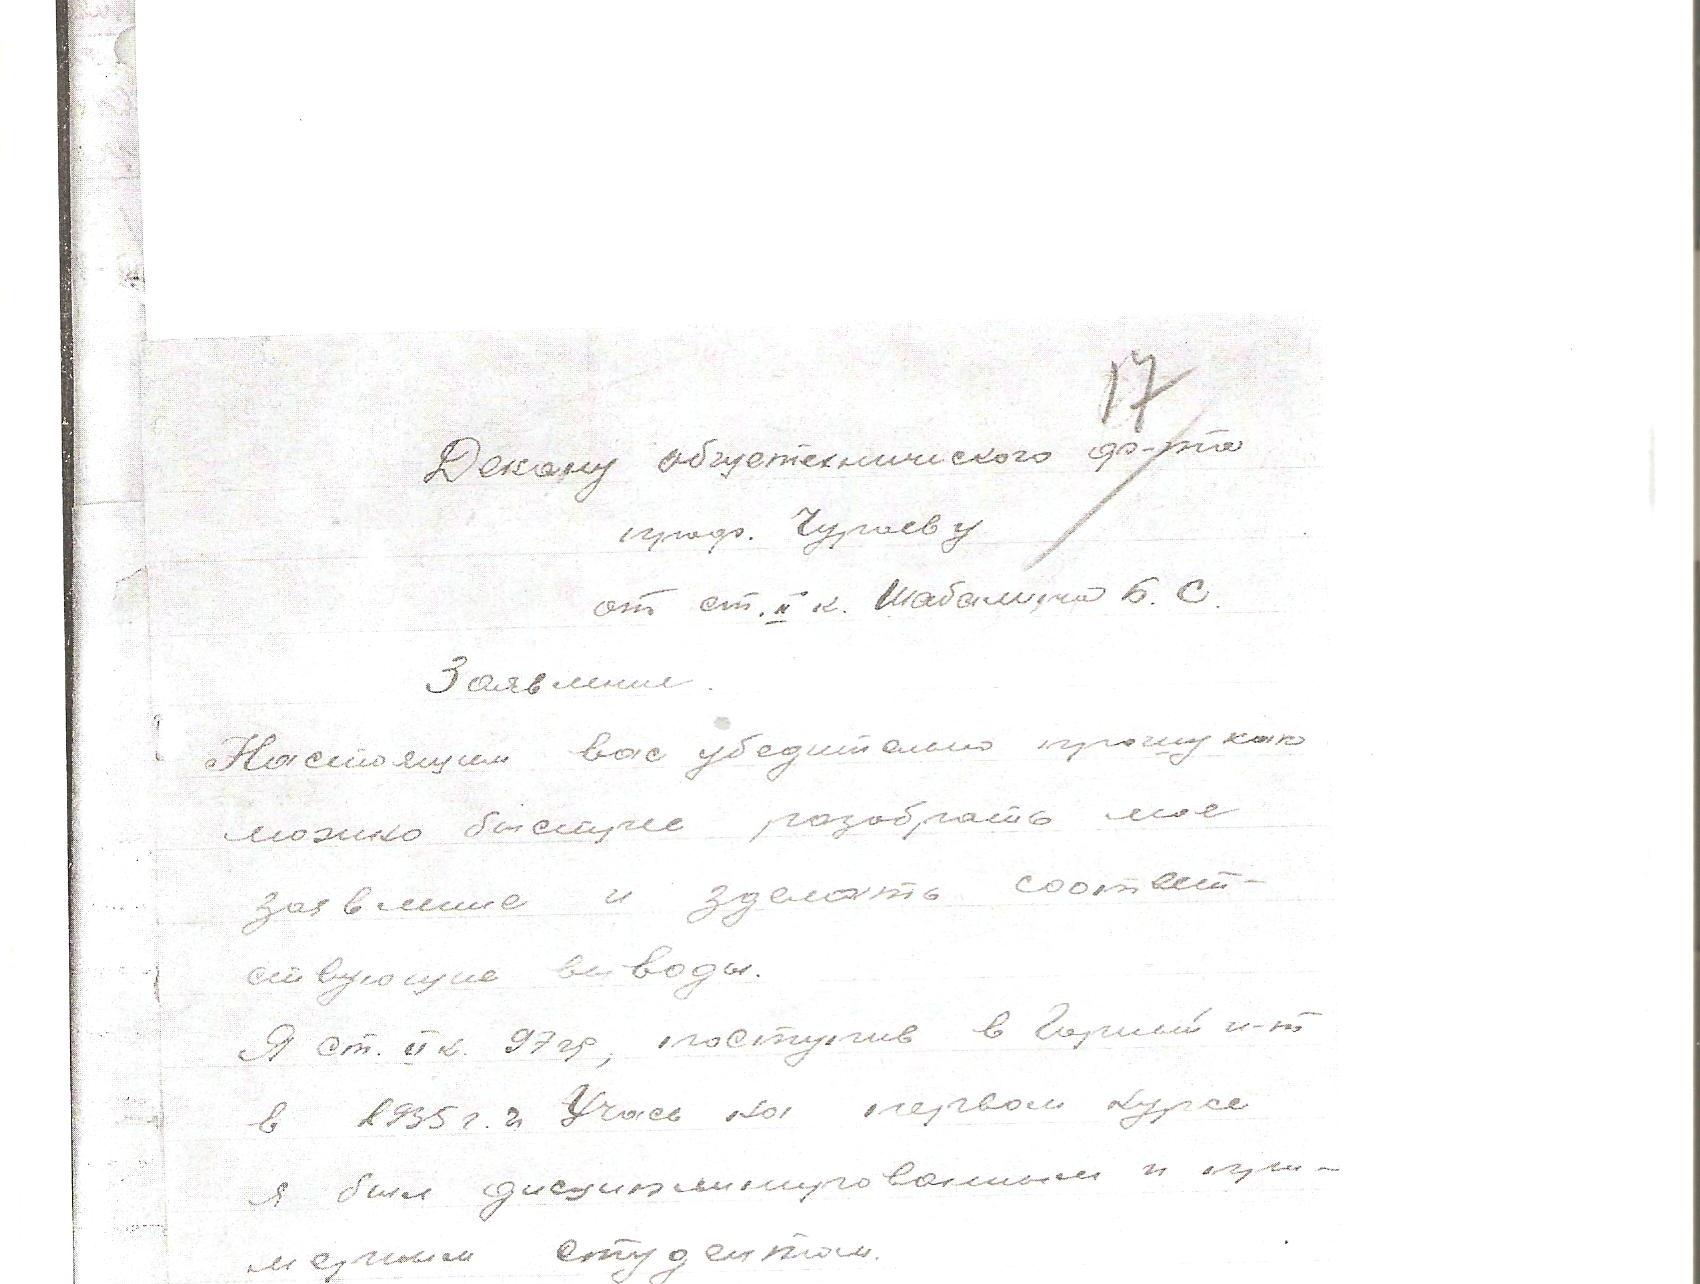 17
Декану общетехнического ф-та
проф. Чураеву
от ст. II к. Шабалина Б. С.
Заявление.
Настоящим вас убедительно прошу как
можно быстрее разобрать мое
заявление и зделать соответ-
ствующие выводы.
Я ст. II к. 97 гр, поступив в Горный и-т
в 1935 г. и Учась на первом курсе
я был дисциплинированным и при-
мерным студентом.